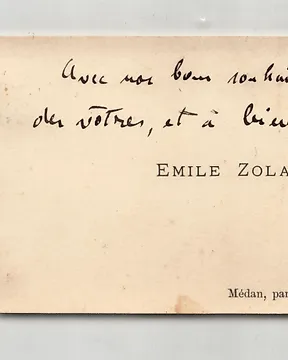 Avec nos bons souhai
des vôtres, et à bien
EMILE ZOLA
Médan, par